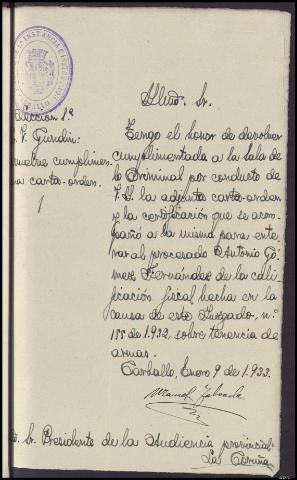 DE 1ª INSTANCIA E INSTRUC
Sección 1ª
V. Gundín.
cumplimen
carta-orden.
1
Iltmo. Sr.
Tengo el honor de devolver
cumplimentada a la Sala de
lo Criminal por conducto de
V.I. la adjunta carta-orden
y la certificación que se acom-
pañó a la misma para ente-
rar al procesado Antonio Gó-
mez Fernández de la cali-
ficación fiscal hecha en la
causa de este Juzgado, nº
155 de 1.932, sobre tenencia de
armas.
Carballo, Enero 9 de 1.933.
Manuel Taboada
Sr. Presidente de la Audiencia provincial-
La Coruña